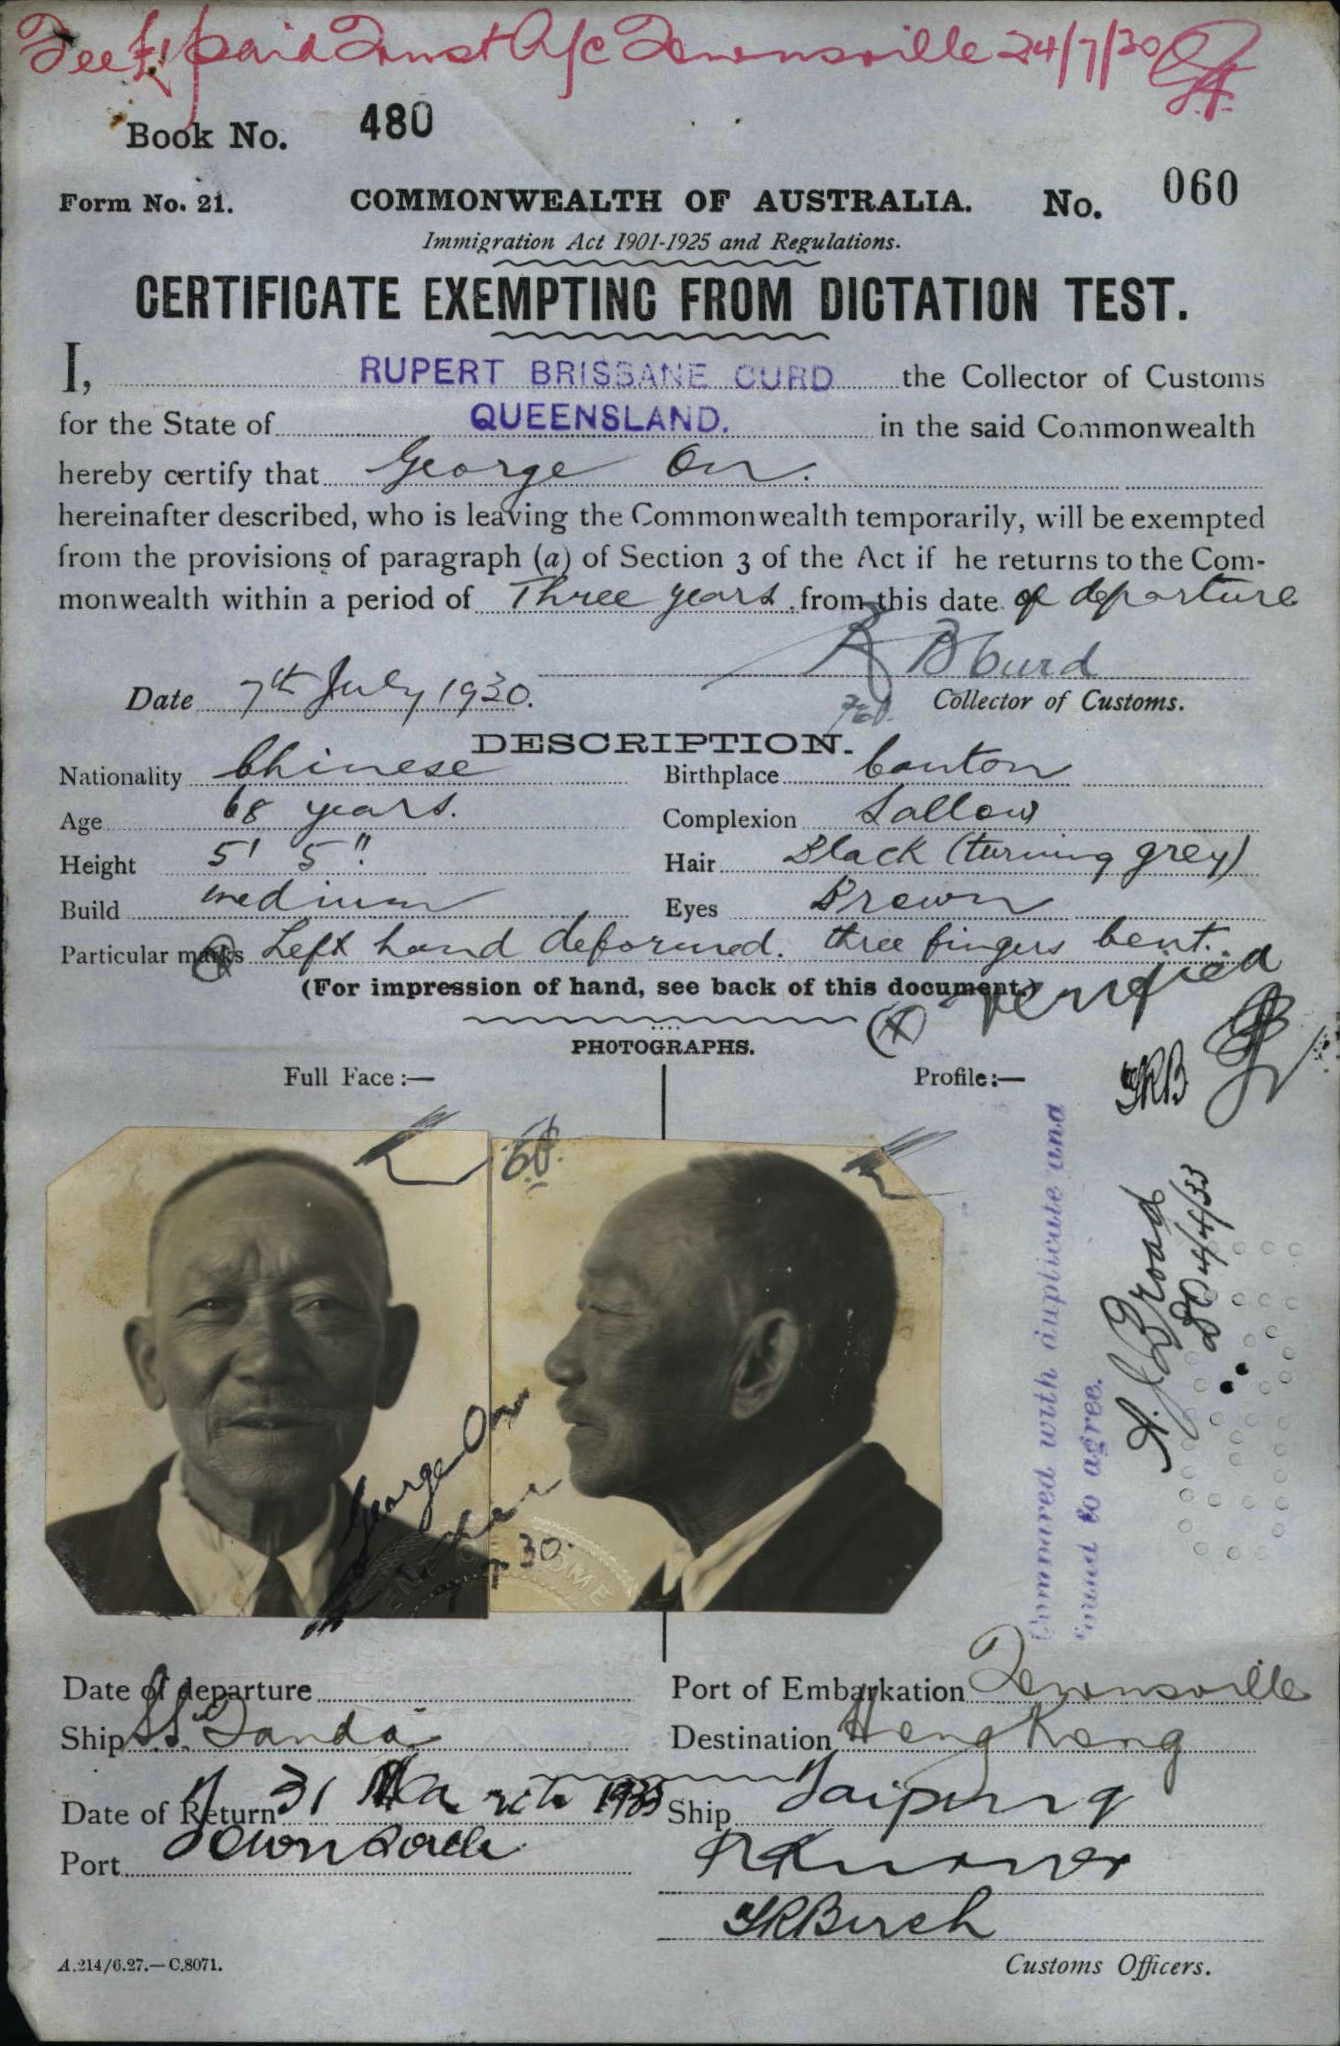 Fee £1 paid Trust A/c Townsville 24/7/30
Book No. 480
Form No. 21. COMMONWEALTH OF AUSTRALIA. No. 060
Immigration Act 1901-1925 and Regulations.
CERTIFICATE EXEMPTING FROM DICTATION TEST.
I, RUPERT BRISBANE CURD the Collector of Customs
for the State of QUEENSLAND. in the said Commonwealth
hereby certify that George On.
hereinafter described, who is leaving the Commonwealth temporarily, will be exempted
from the provisions of paragraph (a) of Section 3 of the Act if he returns to the Com-
monwealth within a period of Three years from this date of departure
R B Curd
Date 7th July 1930. Collector of Customs.
DESCRIPTION.
Nationality Chinese Birthplace Canton
Age 68 years. Complexion Sallow
Height 5' 5". Hair Black (turning grey)
Build medium Eyes Brown
Particular marks Left hand deformed. three fingers bent.
(For impression of hand, see back of this document.)
verified
PHOTOGRAPHS.
Full Face:— Profile:—
TRB
60.
George On
30.
Compared with duplicate and
found to agree.
A. J. Broad
4/4/33
Date of departure Port of Embarkation Townsville
Ship S.S. Tanda Destination Hong Kong
Date of Return 31 March 1933 Ship Taiping
Port Townsville
TRBirch
A.214/6.27.—C.8071. Customs Officers.